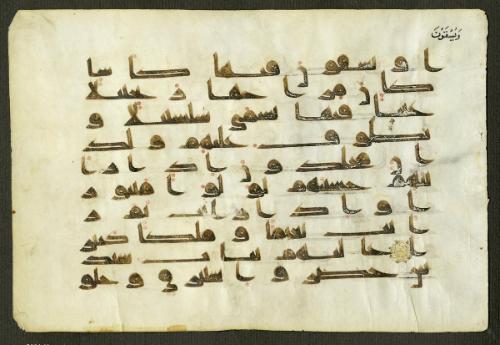 وَيُسْقَوْنَ
ا ويسقون فيها كاسا
كان مزاجها زنجبيلا
عينا فيها تسمى سلسبيلا و
يطوف عليهم ولد
ان مخلدون اذا را
يتهم حسبتهم لولوا منثور
ا واذا رايت ثم ر
ايت نعيما وملكا كبير
ا عليهم ثياب سند
س خضر واستبرق وحلو